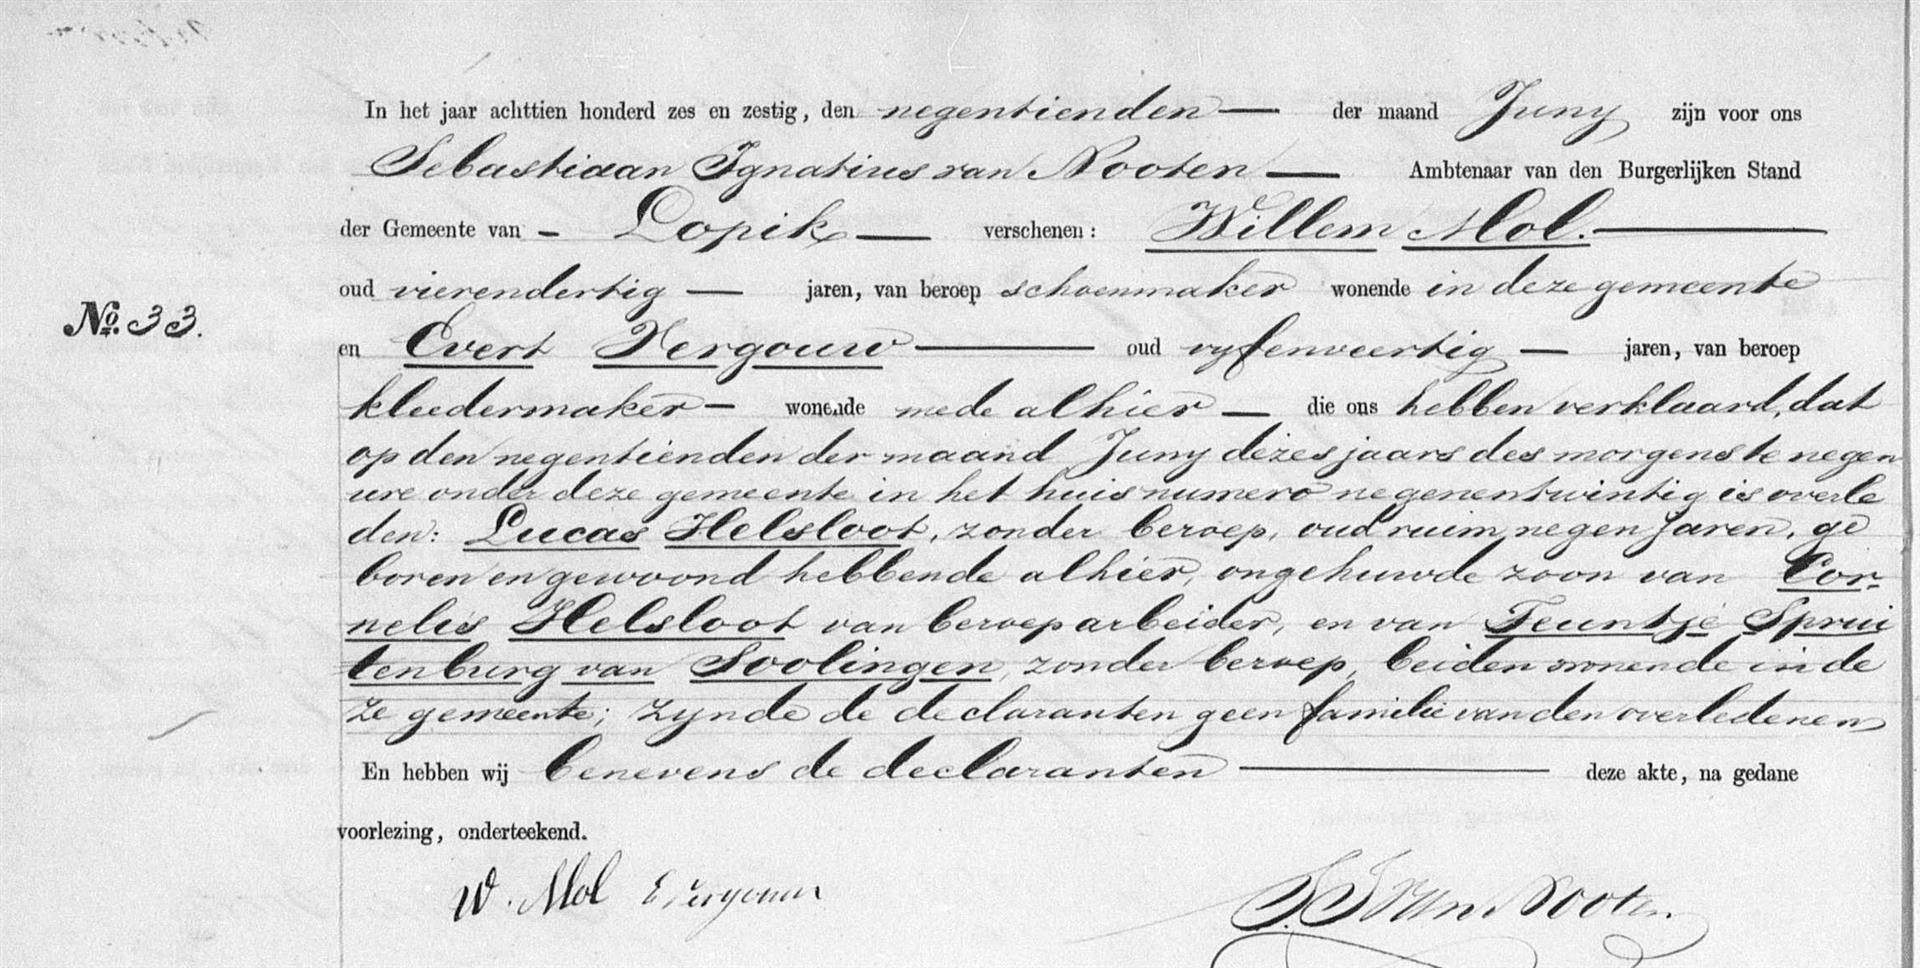 In het jaar achttien honderd zes en zestig, den negentienden — der maand Juny zijn voor ons
Sebastiaan Ignatius van Nooten — Ambtenaar van den Burgerlijken Stand
der Gemeente van - Lopik — verschenen: Willem Mol. —
oud vierendertig — jaren, van beroep schoenmaker wonende in deze gemeente
No. 33.
en Evert Vergouw — oud vyfenveertig — jaren, van beroep
kleedermaker — wonende mede alhier — die ons hebben verklaard, dat
op den negentienden der maand Juny dezes jaars des morgens te negen
ure onder deze gemeente in het huis numero negenentwintig is overle
den: Lucas Helsloot, zonder beroep, oud ruim negen jaren, ge
boren en gewoond hebbende alhier, ongehuwde zoon van Cor-
nelis Helsloot van beroep arbeider, en van Teuntje Sprui
tenburg van Soolingen, zonder beroep, beiden wonende in de
ze gemeente; zynde de declaranten geen familie van den overledenen
En hebben wij benevens de declaranten — deze akte, na gedane
voorlezing, onderteekend.
W. Mol E Vergouw
S. I. van Nooten.